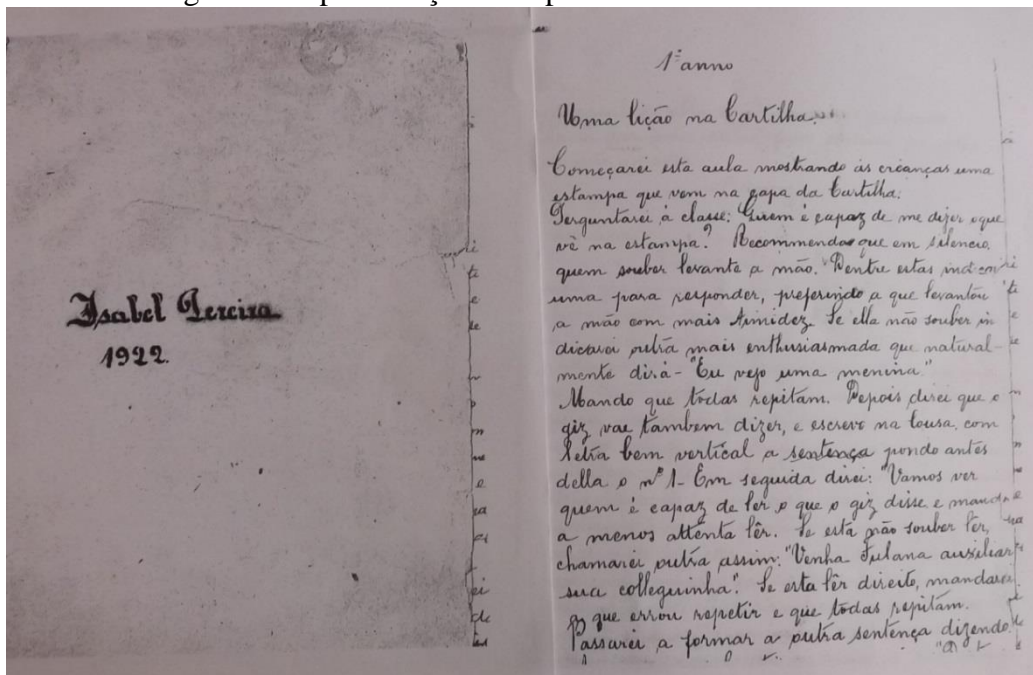 Isabel Pereira
1922.
1º anno
Uma lição na Cartilha.
Começarei esta aula mostrando ás creanças uma
estampa que vem na capa da Cartilha.
Perguntarei á classe: Quem é capaz de me dizer o que
vê na estampa? Recommendo que em silencio,
quem souber levante a mão. Dentre estas indicarei
uma para responder, preferindo a que levantou
a mão com mais timidez. Se ella não souber in
dicarei outra mais enthusiasmada que natural-
mente dirá - "Eu vejo uma menina."
Mando que todas repitam. Depois direi que o
giz vae tambem dizer, e escrevo na lousa, com
letra bem vertical a sentença pondo antes
della o nº 1- Em seguida direi: "Vamos ver
quem é capaz de ler o que o giz disse, e mando
a menos attenta lêr. Se esta não souber ler,
chamarei outra assim: "Venha Fulana auxiliar
sua colleguinha". Se esta lêr direito, mandarei
o que errou repetir e que todas repitam.
Passarei a formar a outra sentença dizendo: